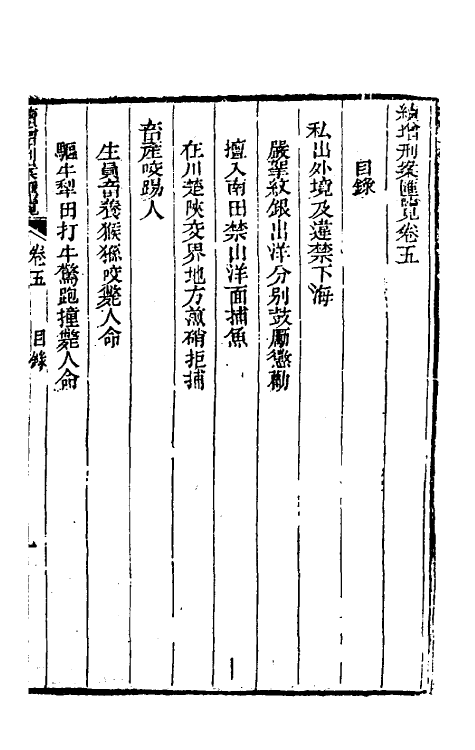 續增刑案匯覽卷五
目錄
私出外境及違禁下海
嚴拏紋銀出洋分別鼓勵懲勸
擅入南田禁山洋面捕魚
在川楚陝交界地方煎硝拒捕
畜產咬踢人
生員畜養猴猻咬斃人命
驅牛犁田打牛驚跑撞斃人命
續增刑案匯覽
卷五
目錄